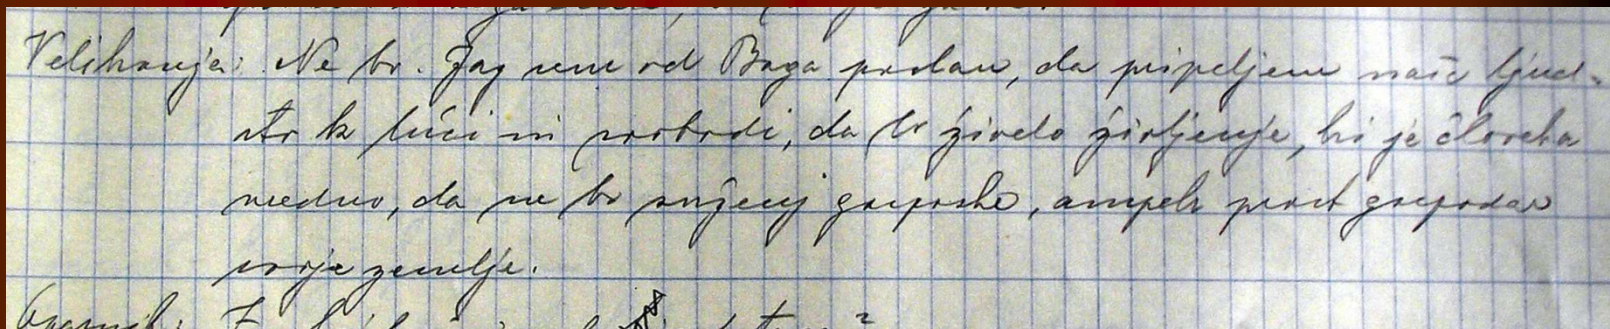 Velikonja: Ne bo. Jaz sem od Boga poslan, da pripeljem naše ljud-
stvo k luči in svobodi, da bo živelo življenje, ki je človeka
vredno, da ne bo suženj gosposke, ampak prost gospodar
svoje zemlje.